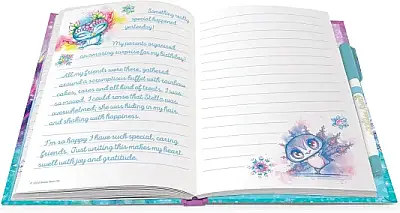 Something really
special happened
yesterday!
My parents organised
an amazing surprise for my birthday!
All my friends were there, gathered
around a scrumptious buffet with rainbow
cakes, roses and all kind of treats. I was
so moved, I could sense that Stella was
overwhelmed; she was hiding in my hair
and shaking with happiness.
I'm so happy I have such special, caring
friends. Just writing this makes my heart
swell with joy and gratitude.